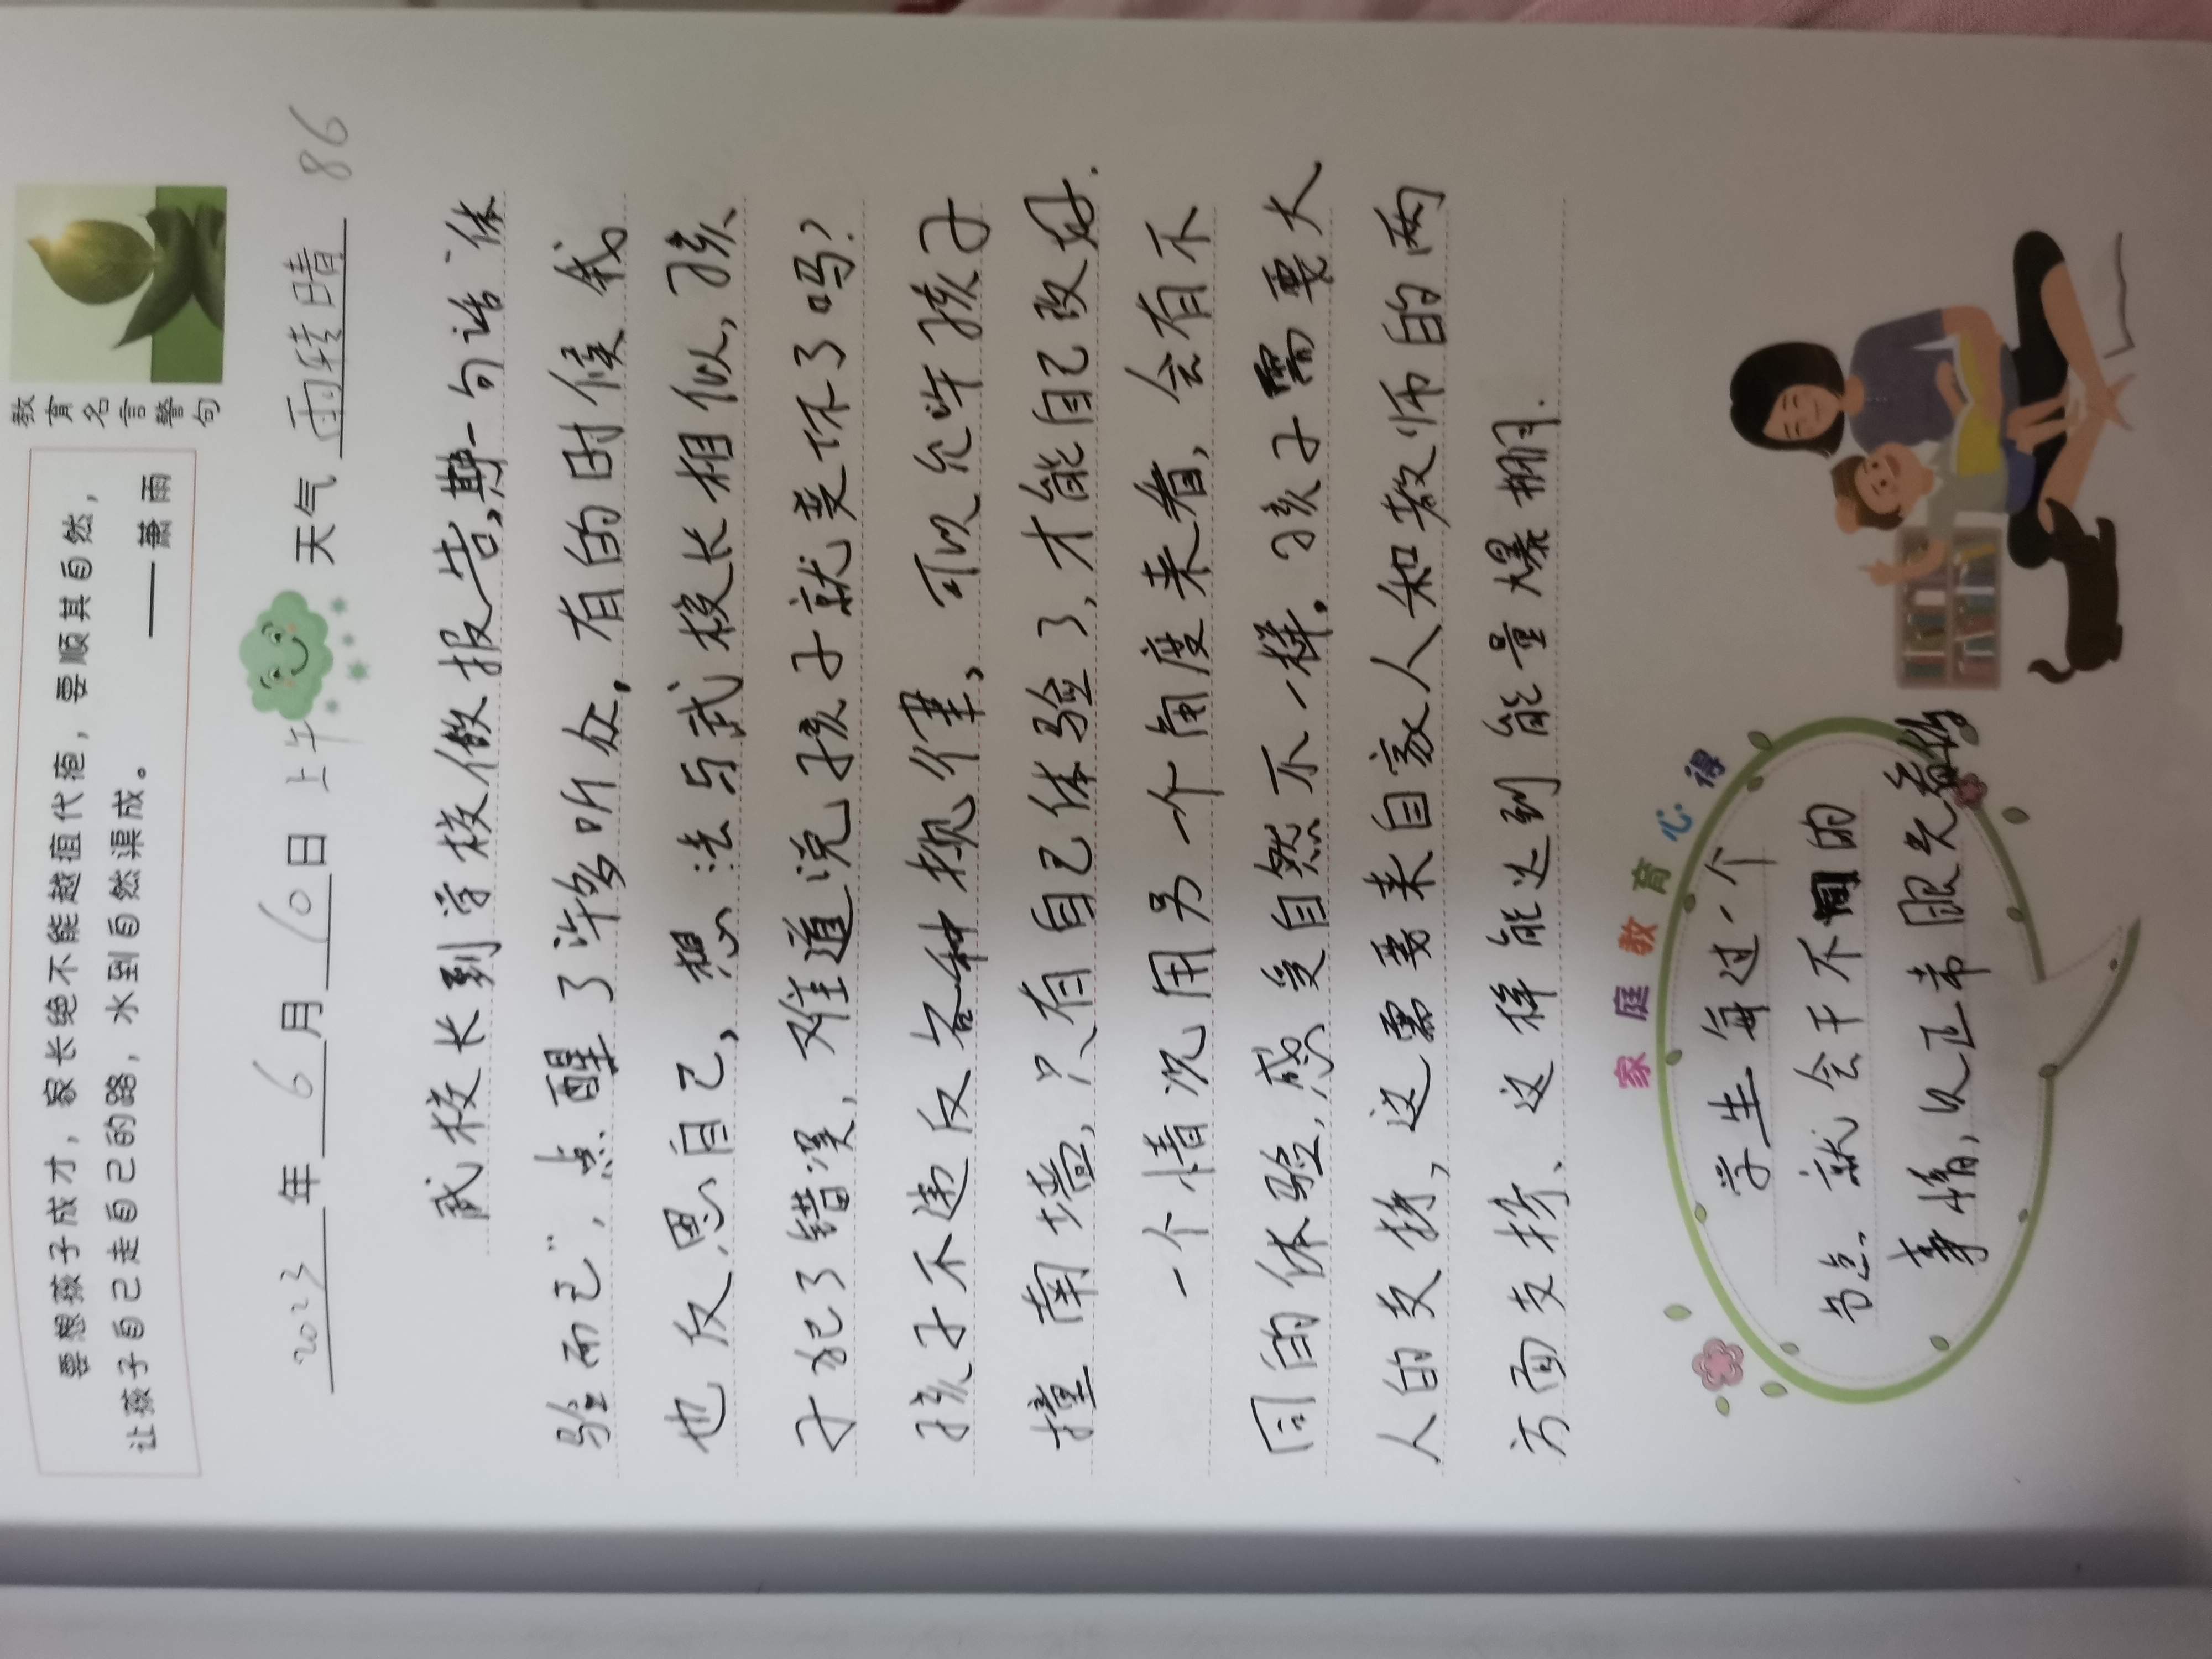 教育名言警句
要想孩子成才，家长绝不能越殖代疱，要顺其自然，
让孩子自己走自己的路，水到自然渠成。
——萧雨
2023年6月10日 上午 天气 雨转晴 86
武校长到学校做报告,其一句话“体
验而已”，点醒了许多听众。有的时候我
也反思自己，想法与武校长相似，孩
子犯了错误，难道说孩子就变坏了吗？
孩子不违反各种规律，可以允许孩子
撞南墙，只有自己体验了，才能自己改过.
一个情况用另一个角度来看，会有不
同的体验，感受自然不一样。孩子需要大
人的支持，这需要来自家人和教师的两
方面支持、这样能达到能量爆棚.
家庭教育心得
学生每过一个
节点、就会干不同的
事情，以正常眼光看待